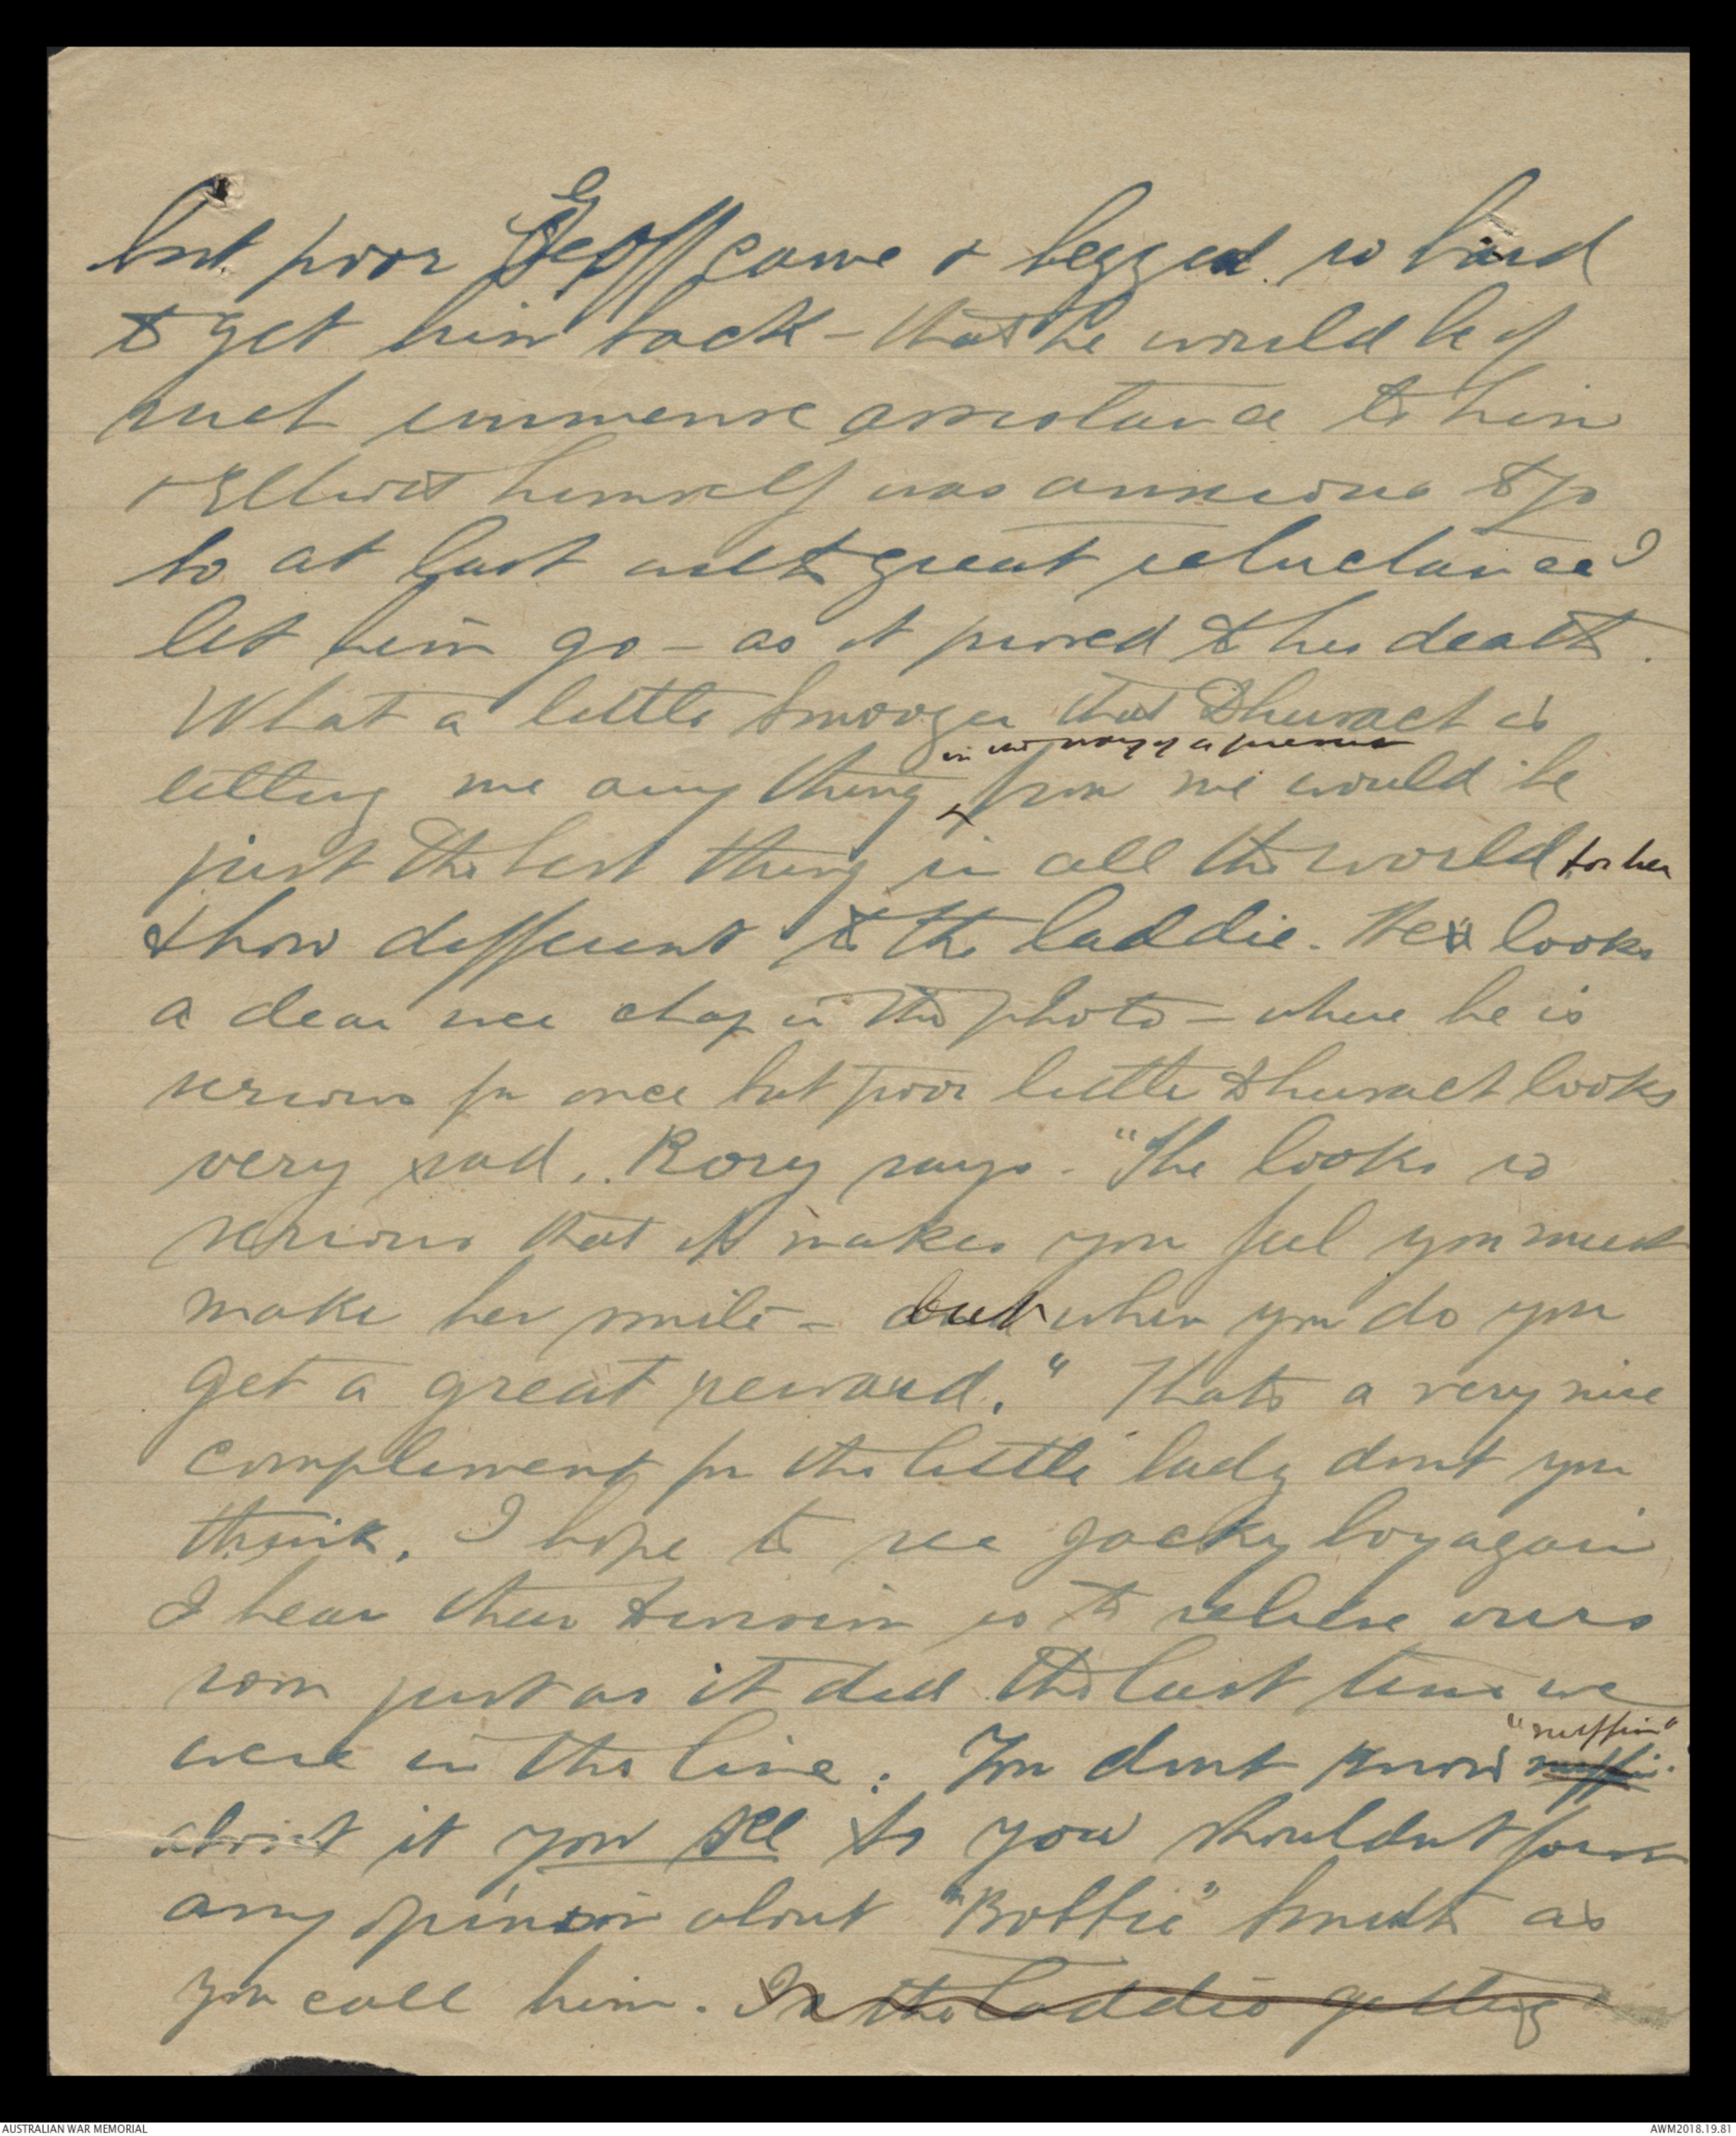 but poor Geoff came & begged so hard
to get him back - that he would be of
such immense assistance to him
& Elliott himself was anxious to go
so at last with great reluctance I
let him go - as it proved to his death.
What a little smooger that Dhurach is
in the way of a present
letting me any thing from me would be
just the best thing in all the world for her
& how different to the laddie. He looks
a dear wee chap in the photo - where he is
serious for once but poor little Dhurach looks
very sad. Rory says. "She looks so
serious that it makes you feel you must
make her smile - but when you do you
get a great reward." Thats a very nice
compliment for the little lady dont you
think. I hope to see Jacky boy again
I hear their division is to relieve ours
soon just as it did the last time we
"nuffin"
were in the line. You dont know nuffin
about it you see so you shouldnt form
any opinion about "Bobbie" Smith as
you call him. Is the laddie getting
AUSTRALIAN WAR MEMORIAL
AWM2018.19.81